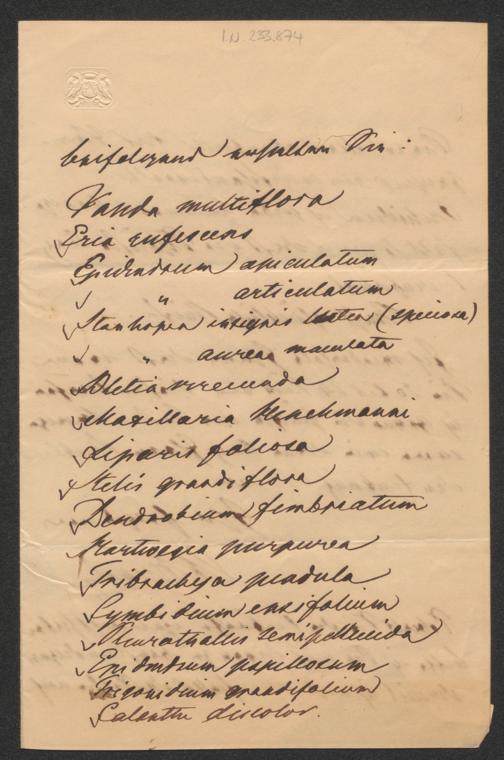 I.N. 233.874
beifolgend erhalten Sie:
Vanda multiflora
Eria rufescens
Epidendrum apiculatum
" articulatum
Stanhopea insignis lutea (speciosa)
" aurea maculata
Bletia verecunda
Maxillaria Hinchmanni
Liparis foliosa
Stelis grandiflora
Dendrobium fimbriatum
Hartwegia purpurea
Tribrachya pendula
Cymbidium ensifolium
Pleurothallis semipellucida
Epidendrum papillosum
Trigonidium grandifolium
Calanthe discolor.